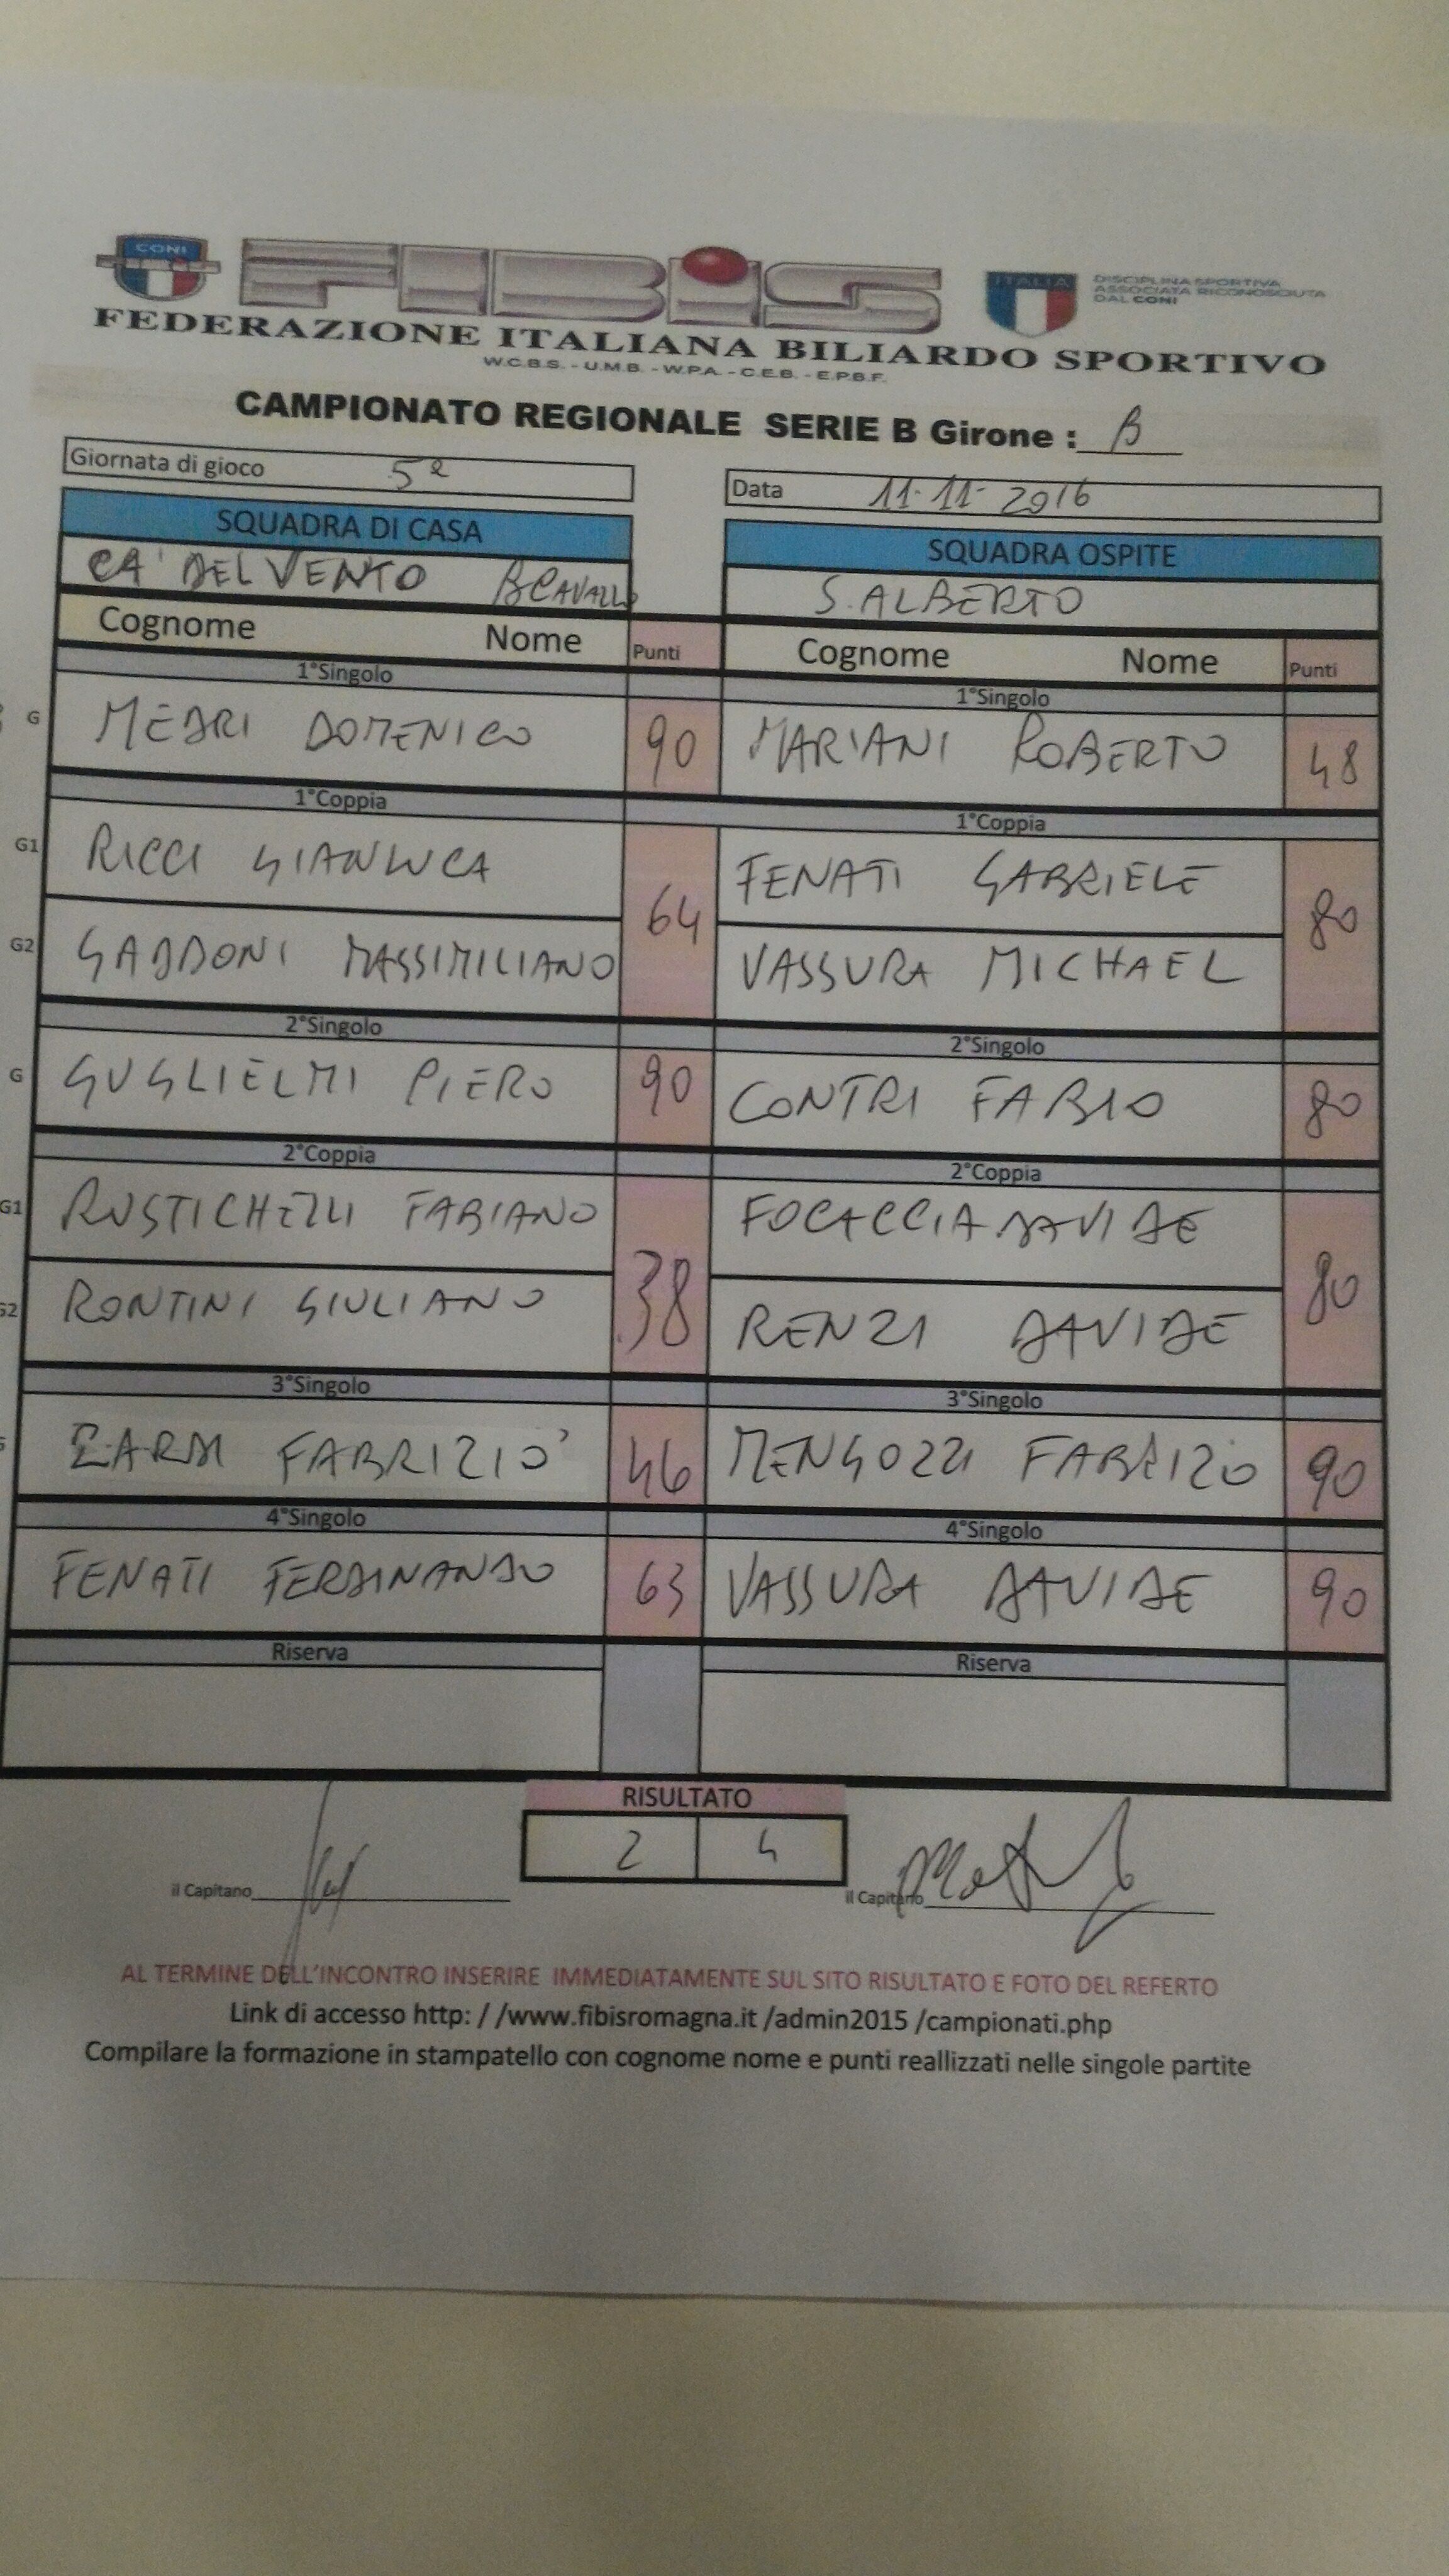 CONI FIBiS ITALIA DISCIPLINA SPORTIVA
ASSOCIATA RICONOSCIUTA
DAL CONI
FEDERAZIONE ITALIANA BILIARDO SPORTIVO
W.C.B.S. - U.M.B. - W.P.A. - C.E.B. - E.P.B.F.
CAMPIONATO REGIONALE SERIE B Girone : B
Giornata di gioco 5ª Data 11-11-2016
SQUADRA DI CASA SQUADRA OSPITE
CA' DEL VENTO BCAVALLO S. ALBERTO
Cognome Nome Punti Cognome Nome Punti
1°Singolo 1°Singolo
G MEDRI DOMENICO 90 MARIANI ROBERTO 48
1°Coppia 1°Coppia
G1 RICCI GIANLUCA 64 FENATI GABRIELE 80
G2 GADDONI MASSIMILIANO VASSURA MICHAEL
2°Singolo 2°Singolo
G GUGLIELMI PIERO 90 CONTRI FABIO 80
2°Coppia 2°Coppia
G1 RUSTICHELLI FABIANO 38 FOCACCIA DAVIDE 80
G2 RONTINI GIULIANO RENZI DAVIDE
3°Singolo 3°Singolo
FABRIZIO 46 MENGOZZI FABRIZIO 90
4°Singolo 4°Singolo
FENATI FERDINANDO 63 VASSURA DAVIDE 90
Riserva Riserva
RISULTATO
2 4
il Capitano il Capitano
AL TERMINE DELL'INCONTRO INSERIRE IMMEDIATAMENTE SUL SITO RISULTATO E FOTO DEL REFERTO
Link di accesso http: / /www.fibisromagna.it /admin2015 /campionati.php
Compilare la formazione in stampatello con cognome nome e punti reallizzati nelle singole partite